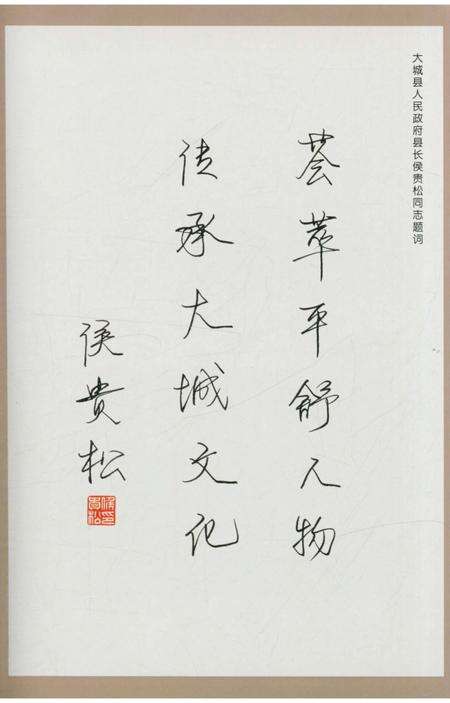 大城县人民政府县长侯贵松同志题词
荟萃平舒人物
传承大城文化
侯贵松